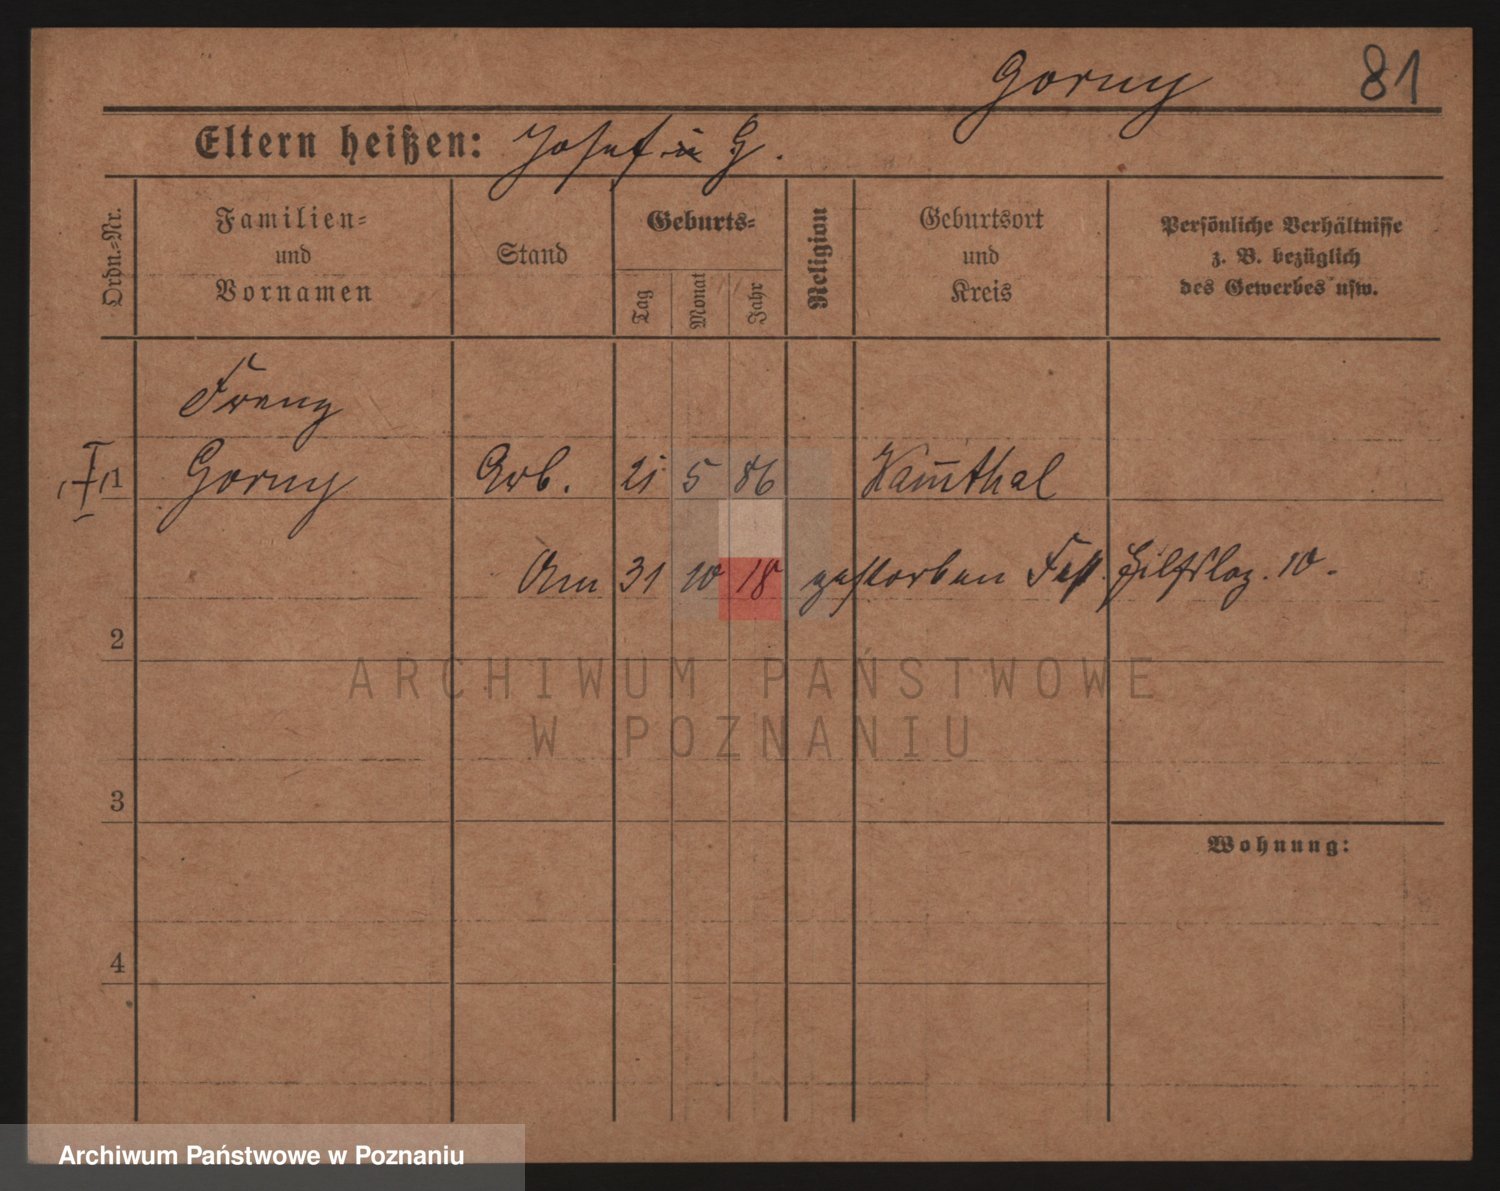 Gorny 81
Eltern heißen: Josef u G.
Ordn.-Nr.
Familien- und Vornamen
Stand
Geburts-
Tag
Monat
Jahr
Religion
Geburtsort und Kreis
Persönliche Verhältnisse z. B. bezüglich des Gewerbes usw.
Franz
1 Gorny Arb. 21 5 86 Kamthal
Am 31 10 18 gestorben Fest. Hilfslaz. 10.
2
ARCHIWUM PAŃSTWOWE
W POZNANIU
3
Wohnung:
4
Archiwum Państwowe w Poznaniu